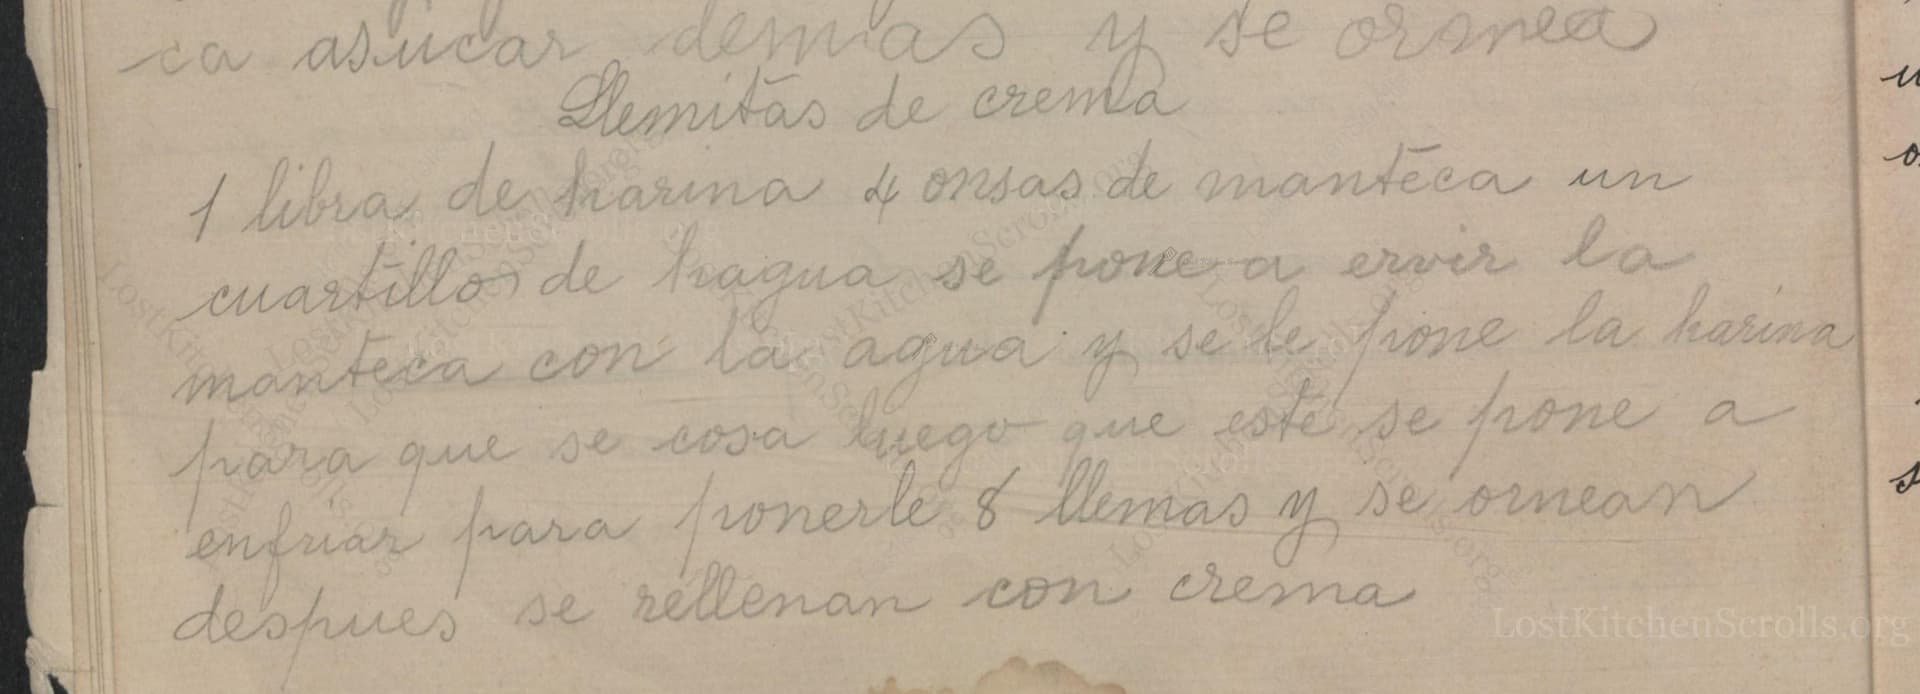 ca asucar demas y se ornea
Llemitas de crema
1 libra de harina 4 onsas de manteca un
cuartillo de hagua se pone a ervir la
manteca con la agua y se le pone la harina
para que se cosa luego que esté se pone a
enfriar para ponerle 8 llemas y se ornean
despues se rellenan con crema
LostKitchenScrolls.org